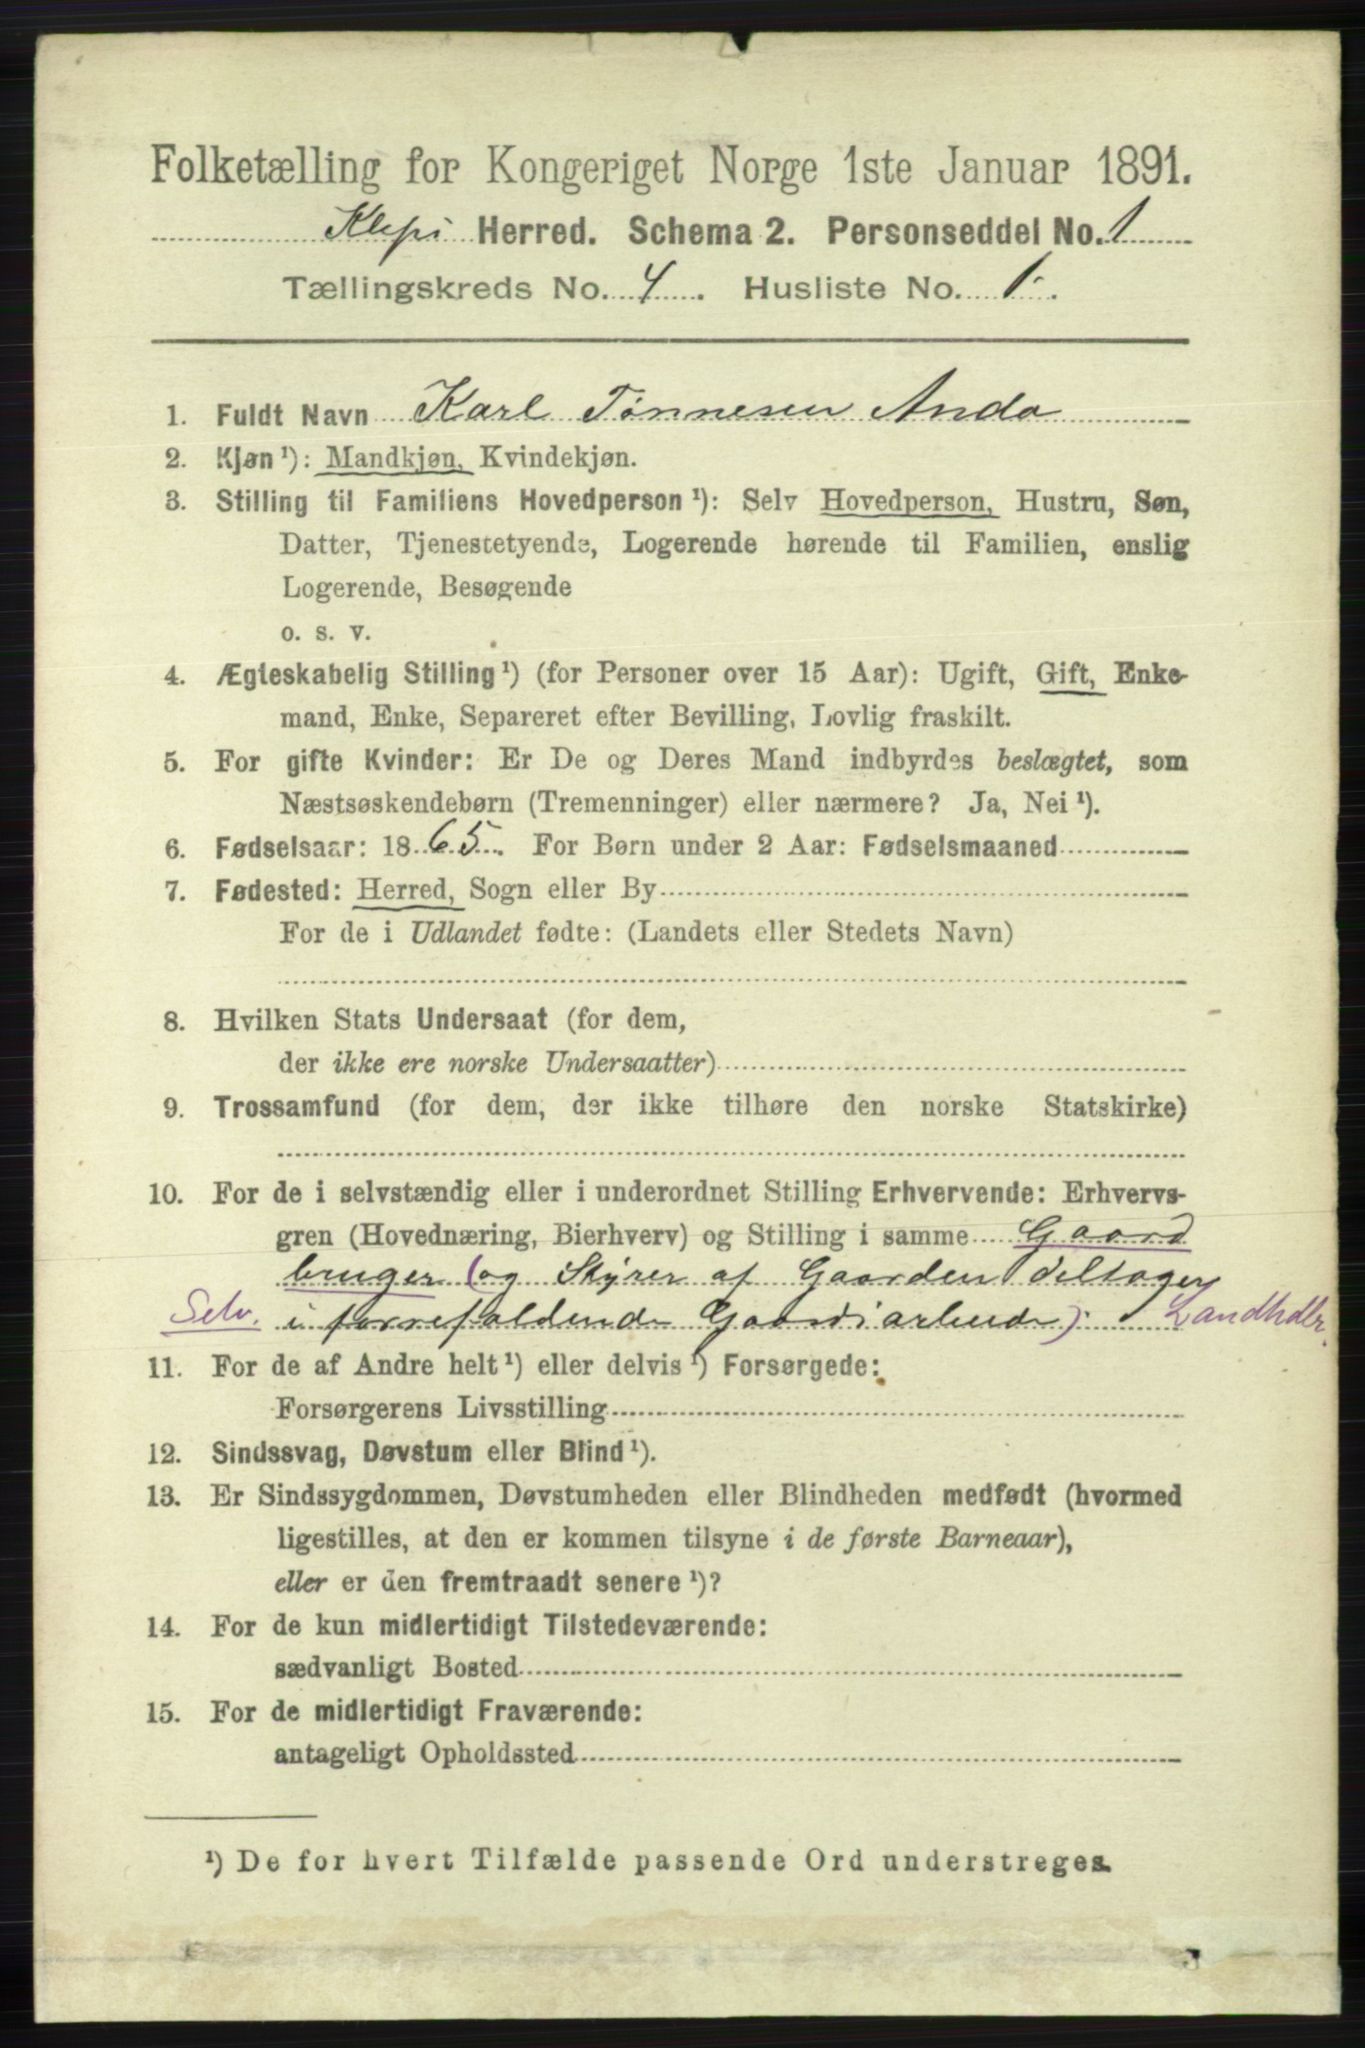 Folketælling for Kongeriget Norge 1ste Januar 1891.
Klepi Herred. Schema 2. Personseddel No. 1
Tællingskreds No. 4. Husliste No. 1.
1. Fuldt Navn Karl Tønnesen Anda
2. Kjøn¹): Mandkjøn, Kvindekjøn.
3. Stilling til Familiens Hovedperson¹): Selv Hovedperson, Hustru, Søn,
Datter, Tjenestetyende, Logerende hørende til Familien, enslig
Logerende, Besøgende
o. s. v.
4. Ægteskabelig Stilling¹) (for Personer over 15 Aar): Ugift, Gift, Enke-
mand, Enke, Separeret efter Bevilling, Lovlig fraskilt.
5. For gifte Kvinder: Er De og Deres Mand indbyrdes beslægtet, som
Næstsøskendebørn (Tremenninger) eller nærmere? Ja, Nei¹).
6. Fødselsaar: 1865. For Børn under 2 Aar: Fødselsmaaned
7. Fødested: Herred, Sogn eller By
For de i Udlandet fødte: (Landets eller Stedets Navn)
8. Hvilken Stats Undersaat (for dem,
der ikke ere norske Undersaatter)
9. Trossamfund (for dem, der ikke tilhøre den norske Statskirke)
10. For de i selvstændig eller i underordnet Stilling Erhvervende: Erhvervs-
gren (Hovednæring, Bierhverv) og Stilling i samme Gaard
bruger (og Styrer af Gaarden deltager
Selv. i forrefaldende Gaardsarbeide). Landhdlr.
11. For de af Andre helt¹) eller delvis¹) Forsørgede:
Forsørgerens Livsstilling
12. Sindssvag, Døvstum eller Blind¹).
13. Er Sindssygdommen, Døvstumheden eller Blindheden medfødt (hvormed
ligestilles, at den er kommen tilsyne i de første Barneaar),
eller er den fremtraadt senere¹)?
14. For de kun midlertidigt Tilstedeværende:
sædvanligt Bosted
15. For de midlertidigt Fraværende:
antageligt Opholdssted
¹) De for hvert Tilfælde passende Ord understreges.